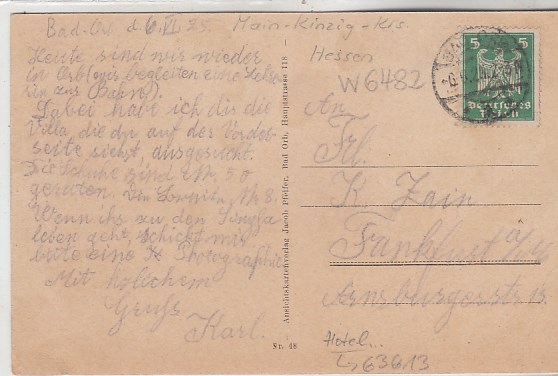 Bad-Orb d. 6. VI 25.
Main-Kinzig-Krs.
Hessen
W6482
Heute sind wir wieder
in Orb (wir begleiten eine
zur Bahn).
Dabei habe ich dir die
Villa, die du auf der Vorder-
seite siehst, ausgesucht.
Die Schuhe sind M. 50
geraten. Nr 8.
Wenn ihr zu den
geht, schickt mir
bitte eine Photographie
Mit herzlichem
Gruß
Karl.
Ansichtskartenverlag Jacob Pfeifer, Bad Orb, Hauptstrasse 118
Nr. 48
5 5
Deutsches
Reich
An
Frl.
K. Zain
Frankfurt a/M
Arnsburgerstr 13
Hotel...
63613